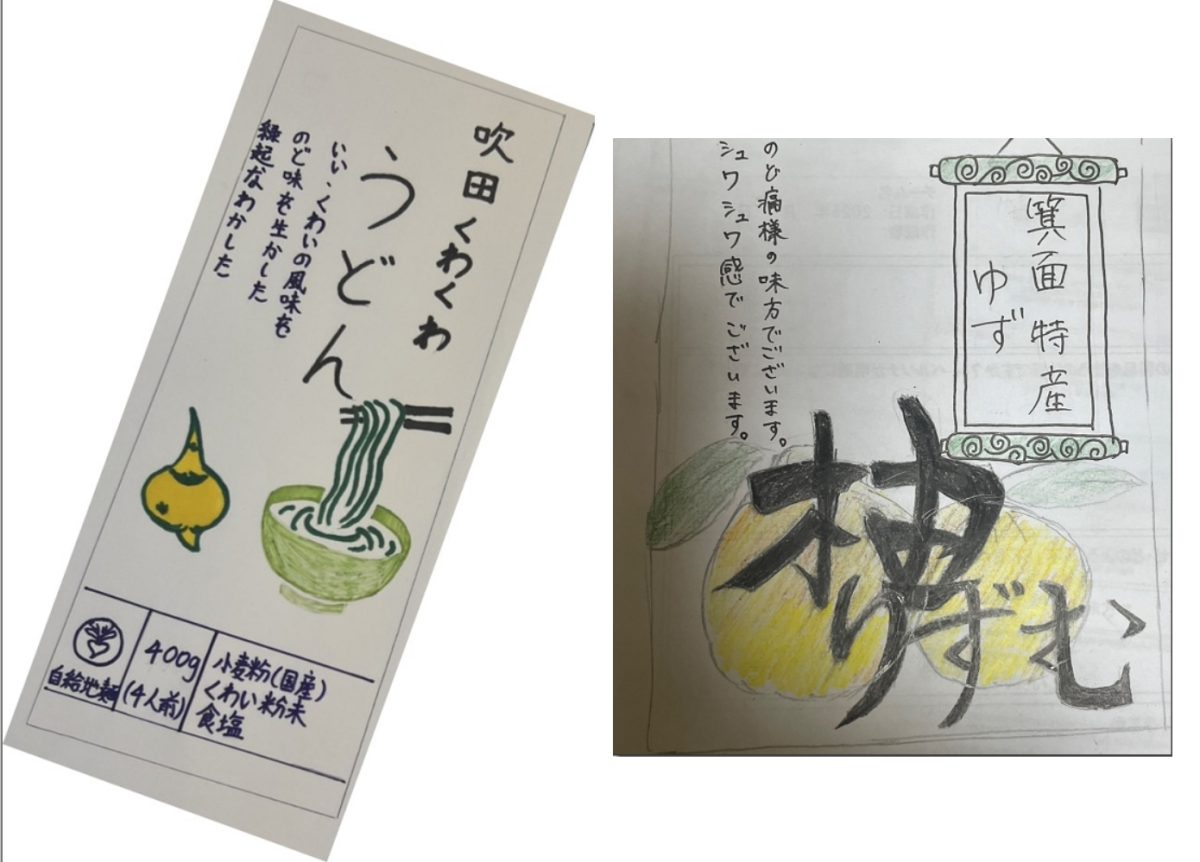 吹田くわくわ
うどん
いい、くわいの風味を
のど味を生かした
縁起なわかした
自給地麺
400g
(4人前)
小麦粉(国産)
くわい粉末
食塩
箕面特産
ゆず
のど痛様の味方でございます。
シュワシュワ感でございます。
柚りずむ